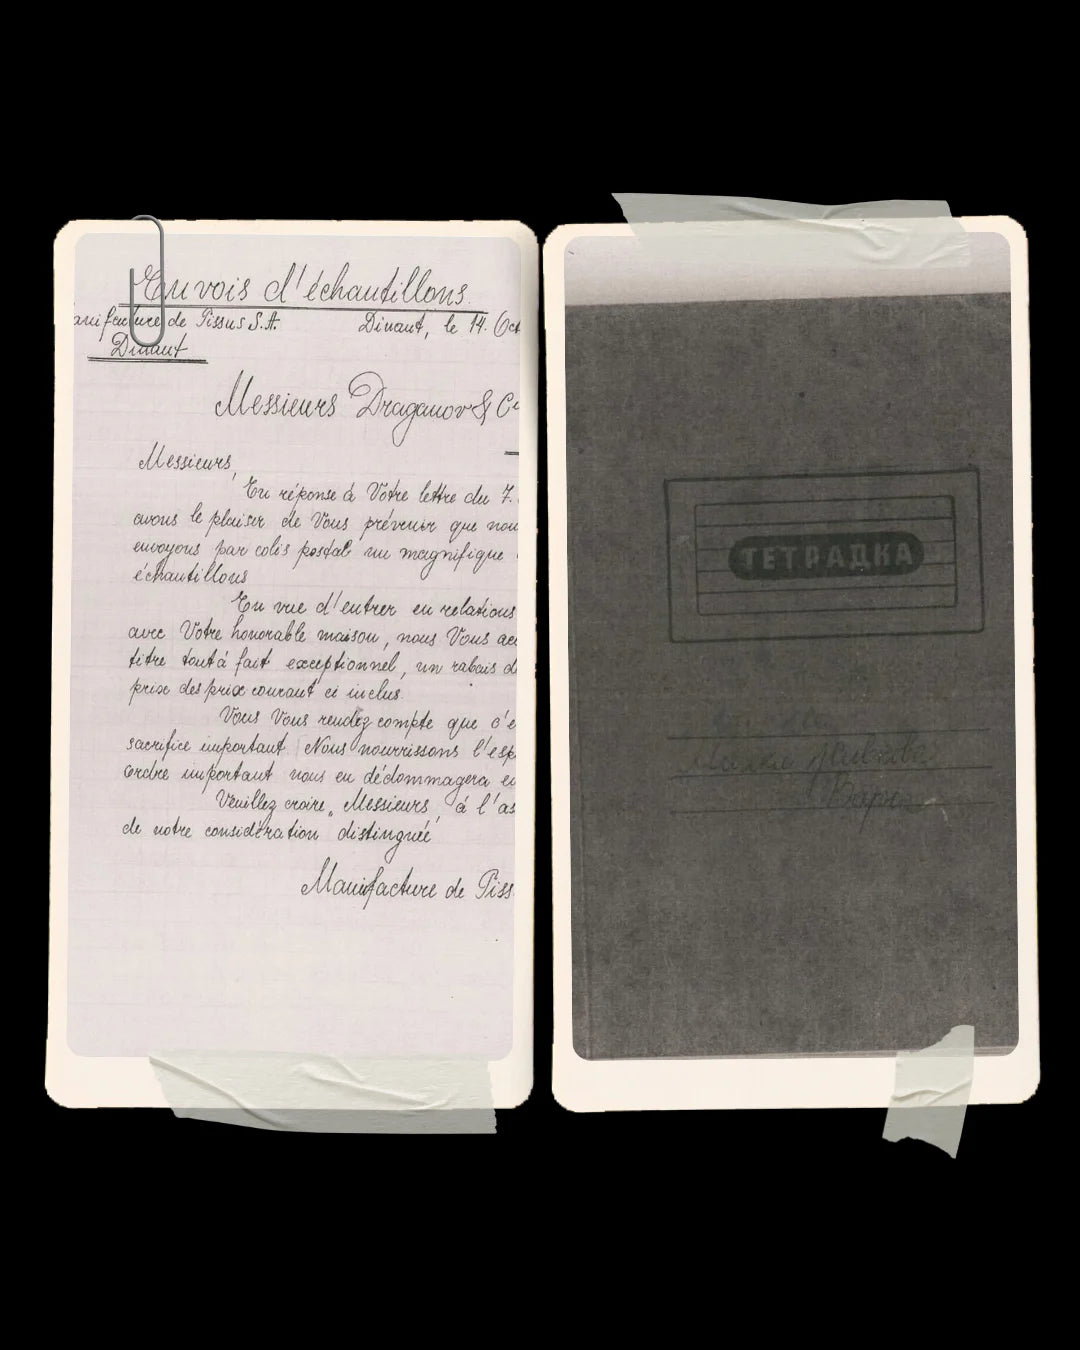 Envois d'échantillons.
anifacture de Tissus S.A. Dinant, le 14. Oct
Dinant
Messieurs Draganov & C
Messieurs,
En réponse à Votre lettre du 7.
avons le plaisir de Vous prévenir que nou
envoyons par colis postal un magnifique
échantillons
En vue d'entrer en relations
avec Votre honorable maison, nous Vous ac
titre tout à fait exceptionnel, un rabais d
prix des prix courant ci inclus.
Vous Vous rendez compte que c'e
sacrifice important. Nous nourrissons l'esp
ordre important nous en dédommagera e
Veuillez croire, Messieurs, à l'as
de notre considération distinguée
Manifacture de Tiss
ТЕТРАДКА